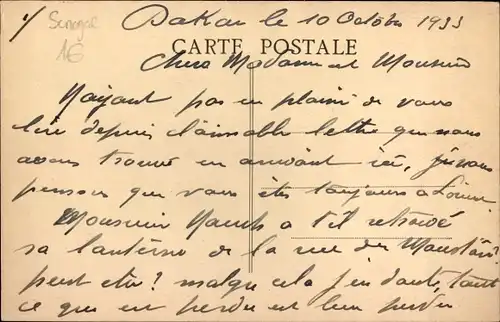 1/ Dakar le 10 Octobre 1933
Senegal
AG
CARTE POSTALE
Chers Madame et Monsieur
N'ayant pas eu plaisir de vous
lire depuis l'aimable lettre que nous
avons trouvé en arrivant ici, je vous
pensons que vous êtes toujours a
Monsieur a t'il retrouvé
sa lanterne de la rue du
peut etre? malgre cela j'en doute, tout
ce que est perdu est bien perdu